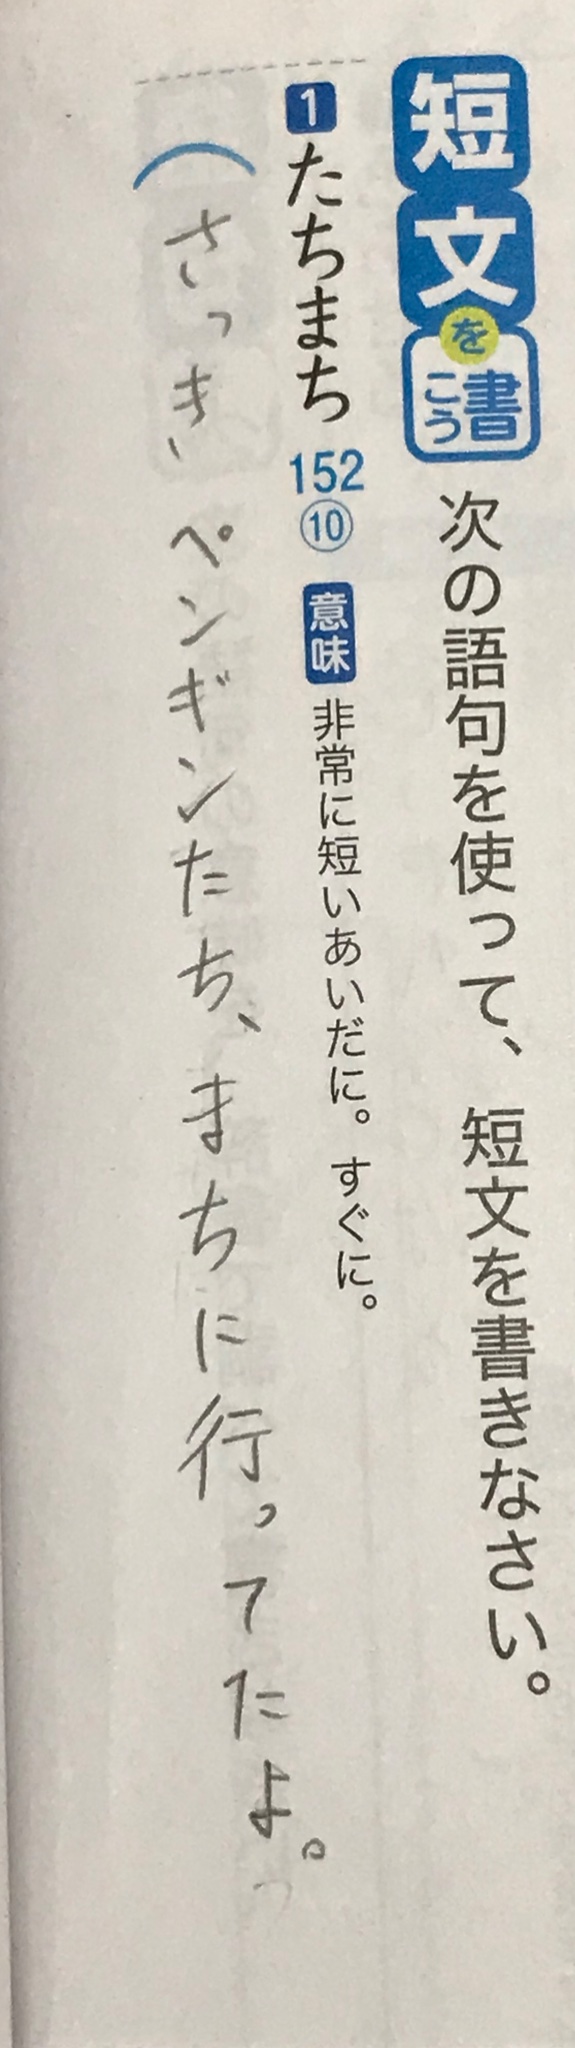 短文を書こう 次の語句を使って、短文を書きなさい。
1 たちまち 152⑩ 意味 非常に短いあいだに。すぐに。
（さっき ペンギンたち、まちに行ってたよ。